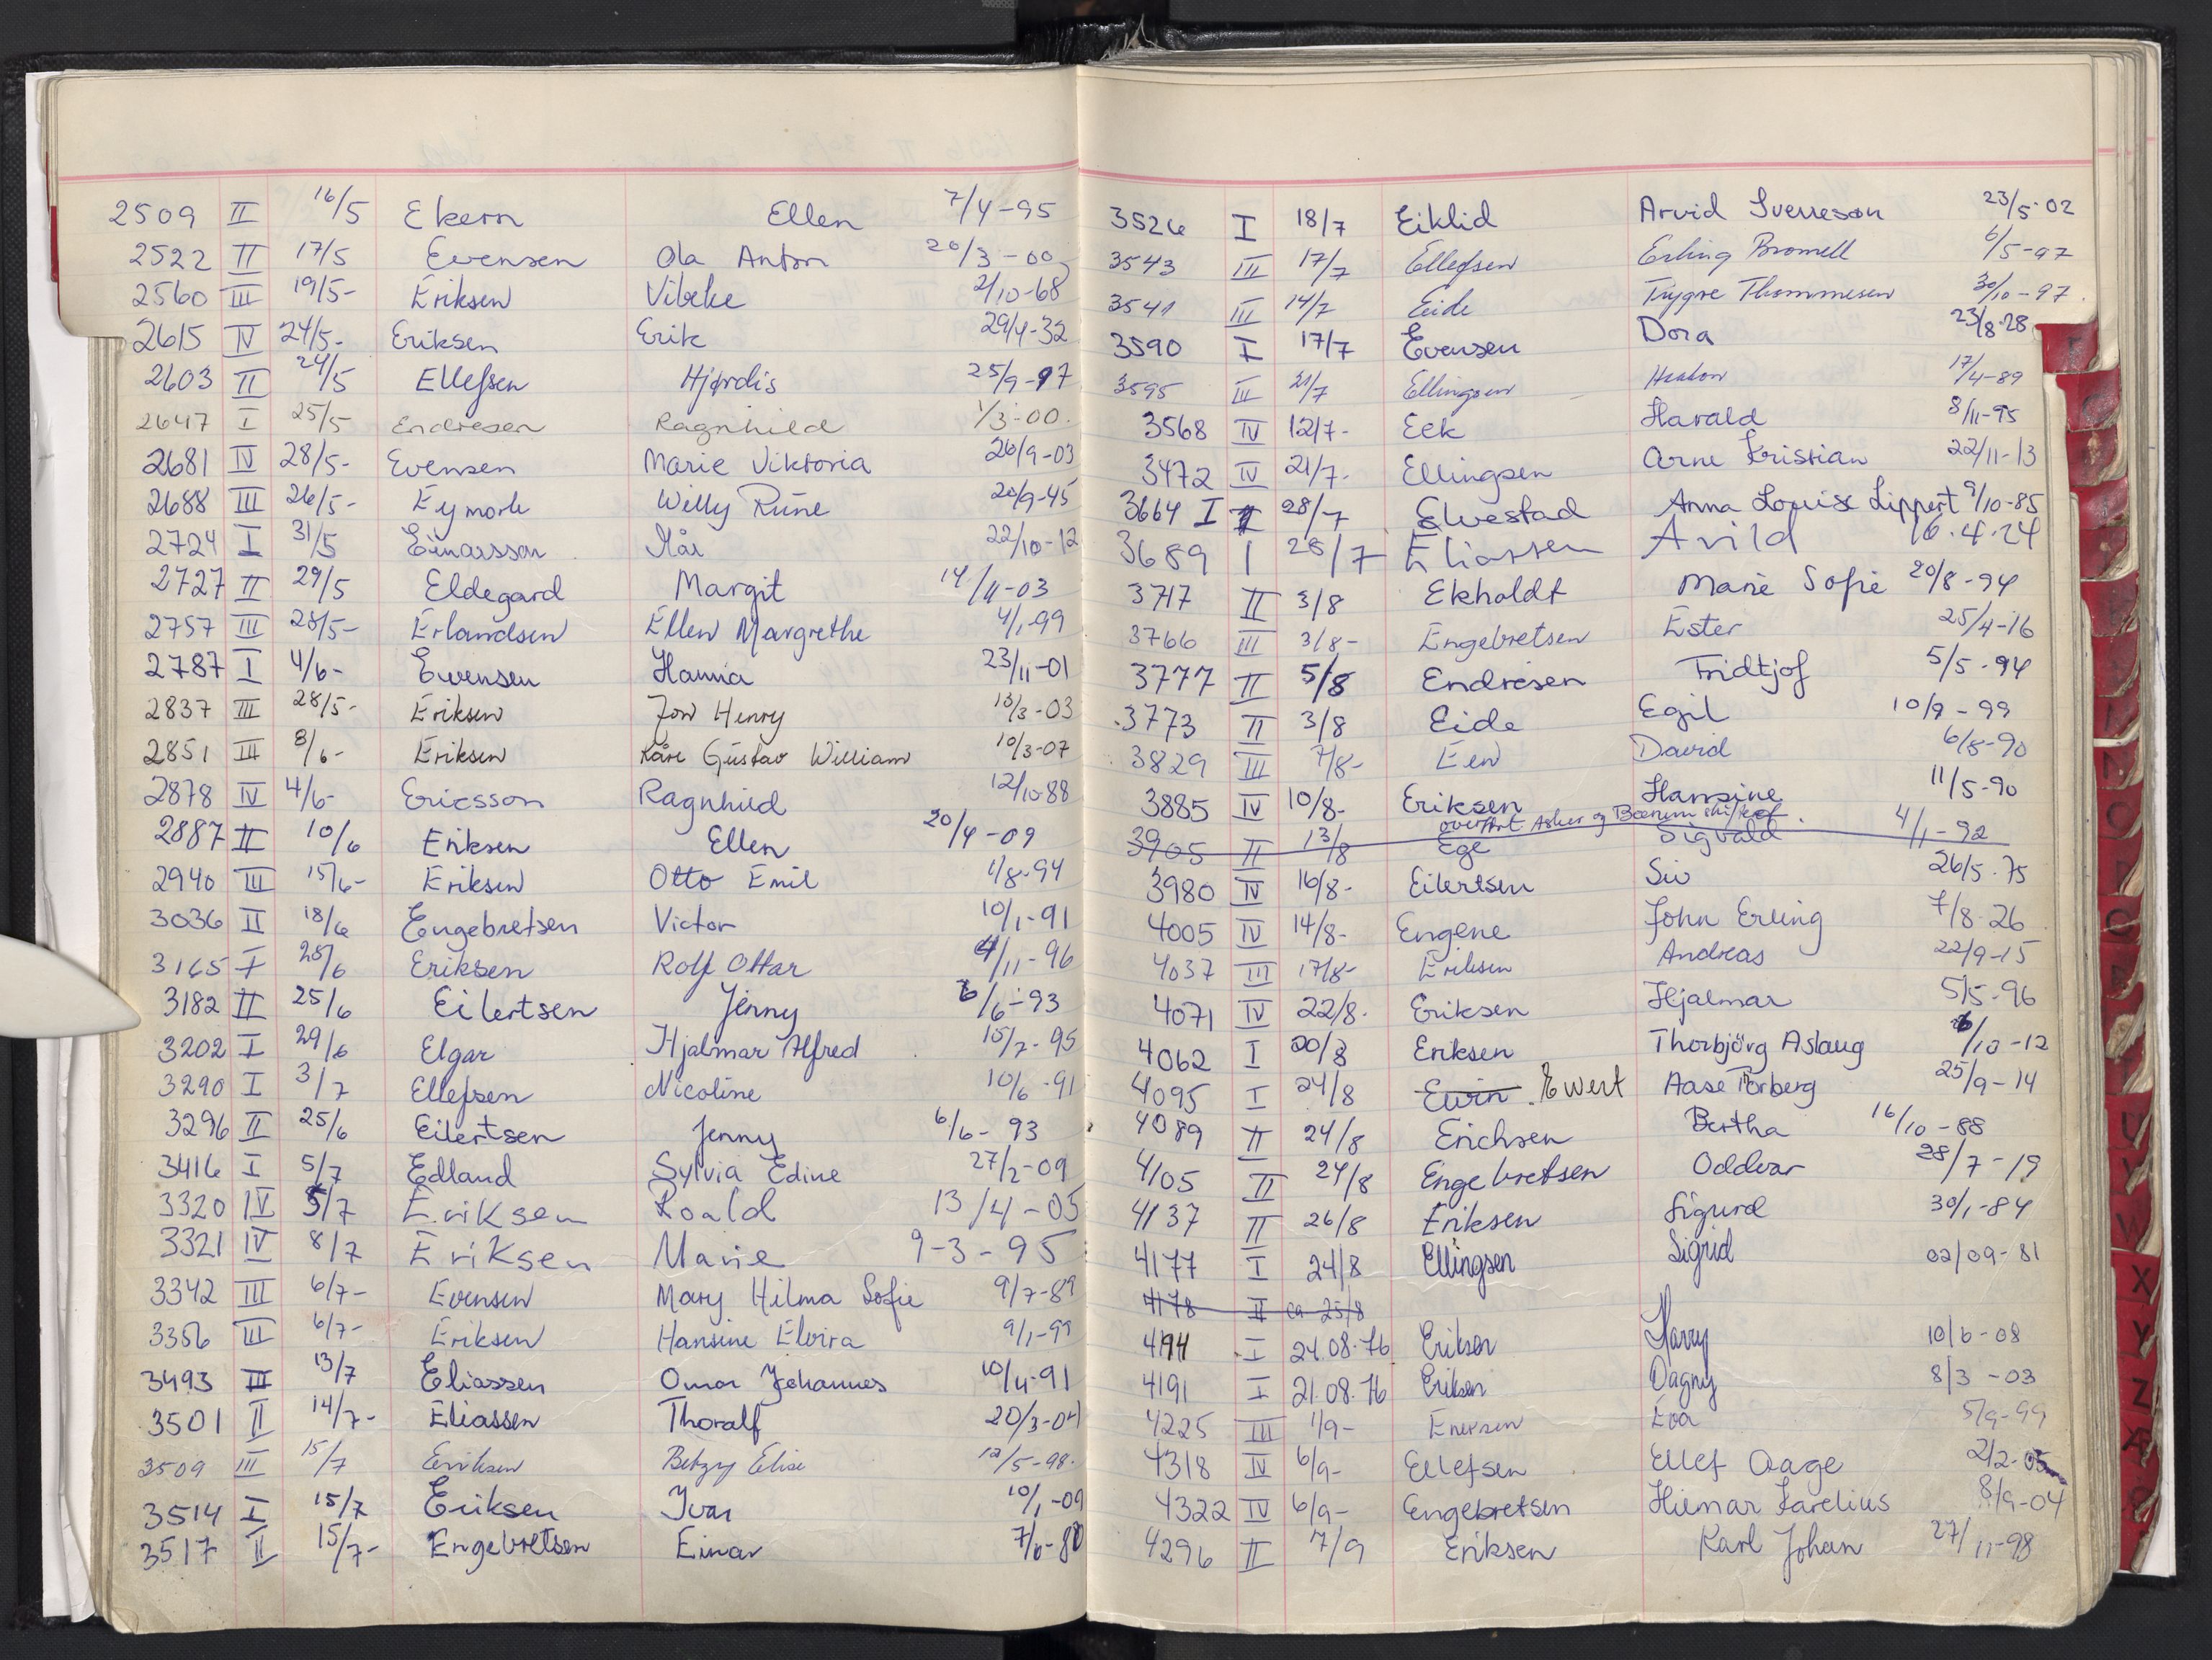 2509 II 16/5 Ekern Ellen 7/4-95
2522 II 17/5 Evensen Ola Anton 20/3-00
2560 III 19/5- Eriksen Vibeke 2/10-68
2615 IV 24/5- Eriksen Erik 29/4-32
2603 II 24/5 Ellefsen Hjørdis 25/9-97
2647 I 25/5 Endresen Ragnhild 1/3-00.
2681 IV 28/5- Evensen Marie Viktoria 26/9-03
2688 III 26/5- Eymork Willy Rune 20/9-45
2724 I 31/5 Einarsson Mår 22/10-12
2727 II 29/5 Eldegard Margit 14/11-03
2757 III 28/5- Erlandsen Ellen Margrethe 4/1-99
2787 I 4/6- Evensen Hanna 23/11-01
2837 III 28/5- Eriksen Jon Henry 13/3-03
2851 III 8/6- Eriksen Kåre Gustav William 10/3-07
2878 IV 4/6- Ericsson Ragnhild 12/10-88
2887 II 10/6 Eriksen Ellen 20/4-09
2940 III 15/6- Eriksen Otto Emil 1/8-94
3036 II 18/6 Engebretsen Victor 10/1-91
3165 I 28/6 Eriksen Rolf Ottar 4/11-96
3182 II 25/6 Eilertsen Jenny 6/6-93
3202 I 29/6 Elgar Hjalmar Alfred 15/7-95
3290 I 3/7 Ellefsen Nicoline 10/6-91
3296 II 25/6 Eilertsen Jenny 6/6-93
3416 I 5/7 Edland Sylvia Edine 27/2-09
3320 IV 5/7 Eriksen Roald 13/4-05
3321 IV 8/7 Eriksen Marie 9-3-95
3342 III 6/7- Evensen Mary Hilma Sofie 9/7-89
3356 III 6/7- Eriksen Hansine Elvira 9/1-99
3493 III 13/7 Eliassen Omar Johannes 10/4-91
3501 II 14/7- Eliassen Thoralf 20/3-04
3509 III 15/7 Eriksen Betzy Elise 12/5-98.
3514 I 15/7 Eriksen Ivar 10/1-09
3517 II 15/7- Engebretsen Einar 7/6-80
3526 I 18/7 Eiklid Arvid Sverreson 23/5-02
3543 III 17/7 Ellefsen Erling Bromell 6/5-97
3541 III 14/7 Eide Trygve Thommesen 30/10-97.
3590 I 17/7 Evensen Dora 23/8-28
3595 III 21/7 Ellingsen Haakon 17/4-89
3568 IV 12/7- Eek Harald 8/11-95
3472 IV 21/7- Ellingsen Arne Kristian 22/11-13
3664 I 28/7 Elvestad Anna Louise Lippert 9/10-85
3689 I 28/7 Eliassen Arild 16.4.24
3717 II 3/8 Ekholdt Marie Sofie 20/8-94
3766 III 3/8- Engebretsen Ester 25/4-16
3777 II 5/8 Endresen Fridtjof 5/5-94
3773 II 3/8 Eide Egil 10/9-99
3829 III 7/8- Een David 6/8-90
3885 IV 10/8- Eriksen Hansine 11/5-90
overført Asker og Bærum
3905 II 13/8 Ege Sigvald 4/1-92
3980 IV 16/8- Eilertsen Siv 26/5-75
4005 IV 14/8- Engene John Erling 7/8-26
4037 III 17/8- Eriksen Andreas 22/9-15
4071 IV 22/8- Eriksen Hjalmar 5/5-96
4062 I 20/8 Eriksen Thorbjörg Aslaug 6/10-12
4095 I 24/8 Ewert Aase Torberg 25/9-14
4089 II 24/8 Erichsen Bertha 16/10-88
4105 II 24/8 Engebretsen Oddvar 28/7-19
4137 II 26/8 Eriksen Sigurd 30/1-84
4177 I 24/8 Ellingsen Sigrid 02/09-81
4178 II ca 25/8
4194 I 24.08.76 Eriksen Harry 10/6-08
4191 I 21.08.76 Eriksen Dagny 8/3-03
4225 III 1/9- Eva 5/9-99
4318 IV 6/9- Ellefsen Ellef Aage 2/2-05
4322 IV 6/9- Engebretsen Hilmar Karelius 8/9-04
4296 II 7/9 Eriksen Karl Johan 27/11-98
U
V
W
X
Y
Z
Æ